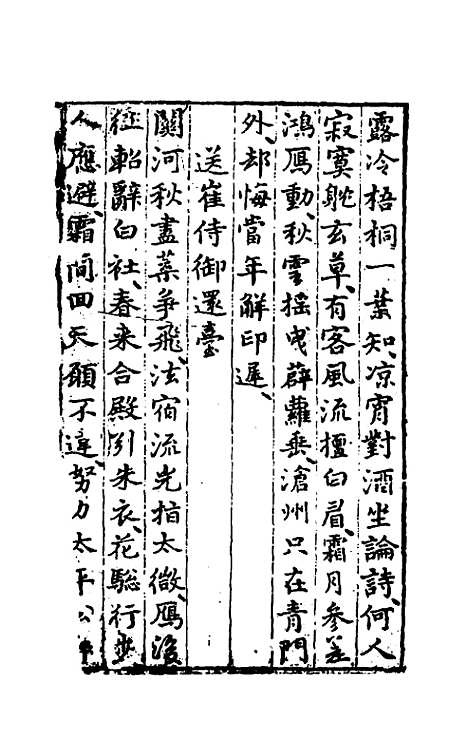 露冷梧桐一葉知、凉宵對酒坐論詩、何人
寂寞躭玄草、有客風流擅白眉、霜月參差
鴻鴈動、秋雲揺曳薜蘿垂、滄州只在青門
外、却悔當年解印遲、
送崔侍御還臺
關河秋盡葉爭飛、法宿流光指太微、鴈後
征軺辭白社、春来合殿引朱衣、花驄行處
人應避、霜簡回天願不違、努力太平公